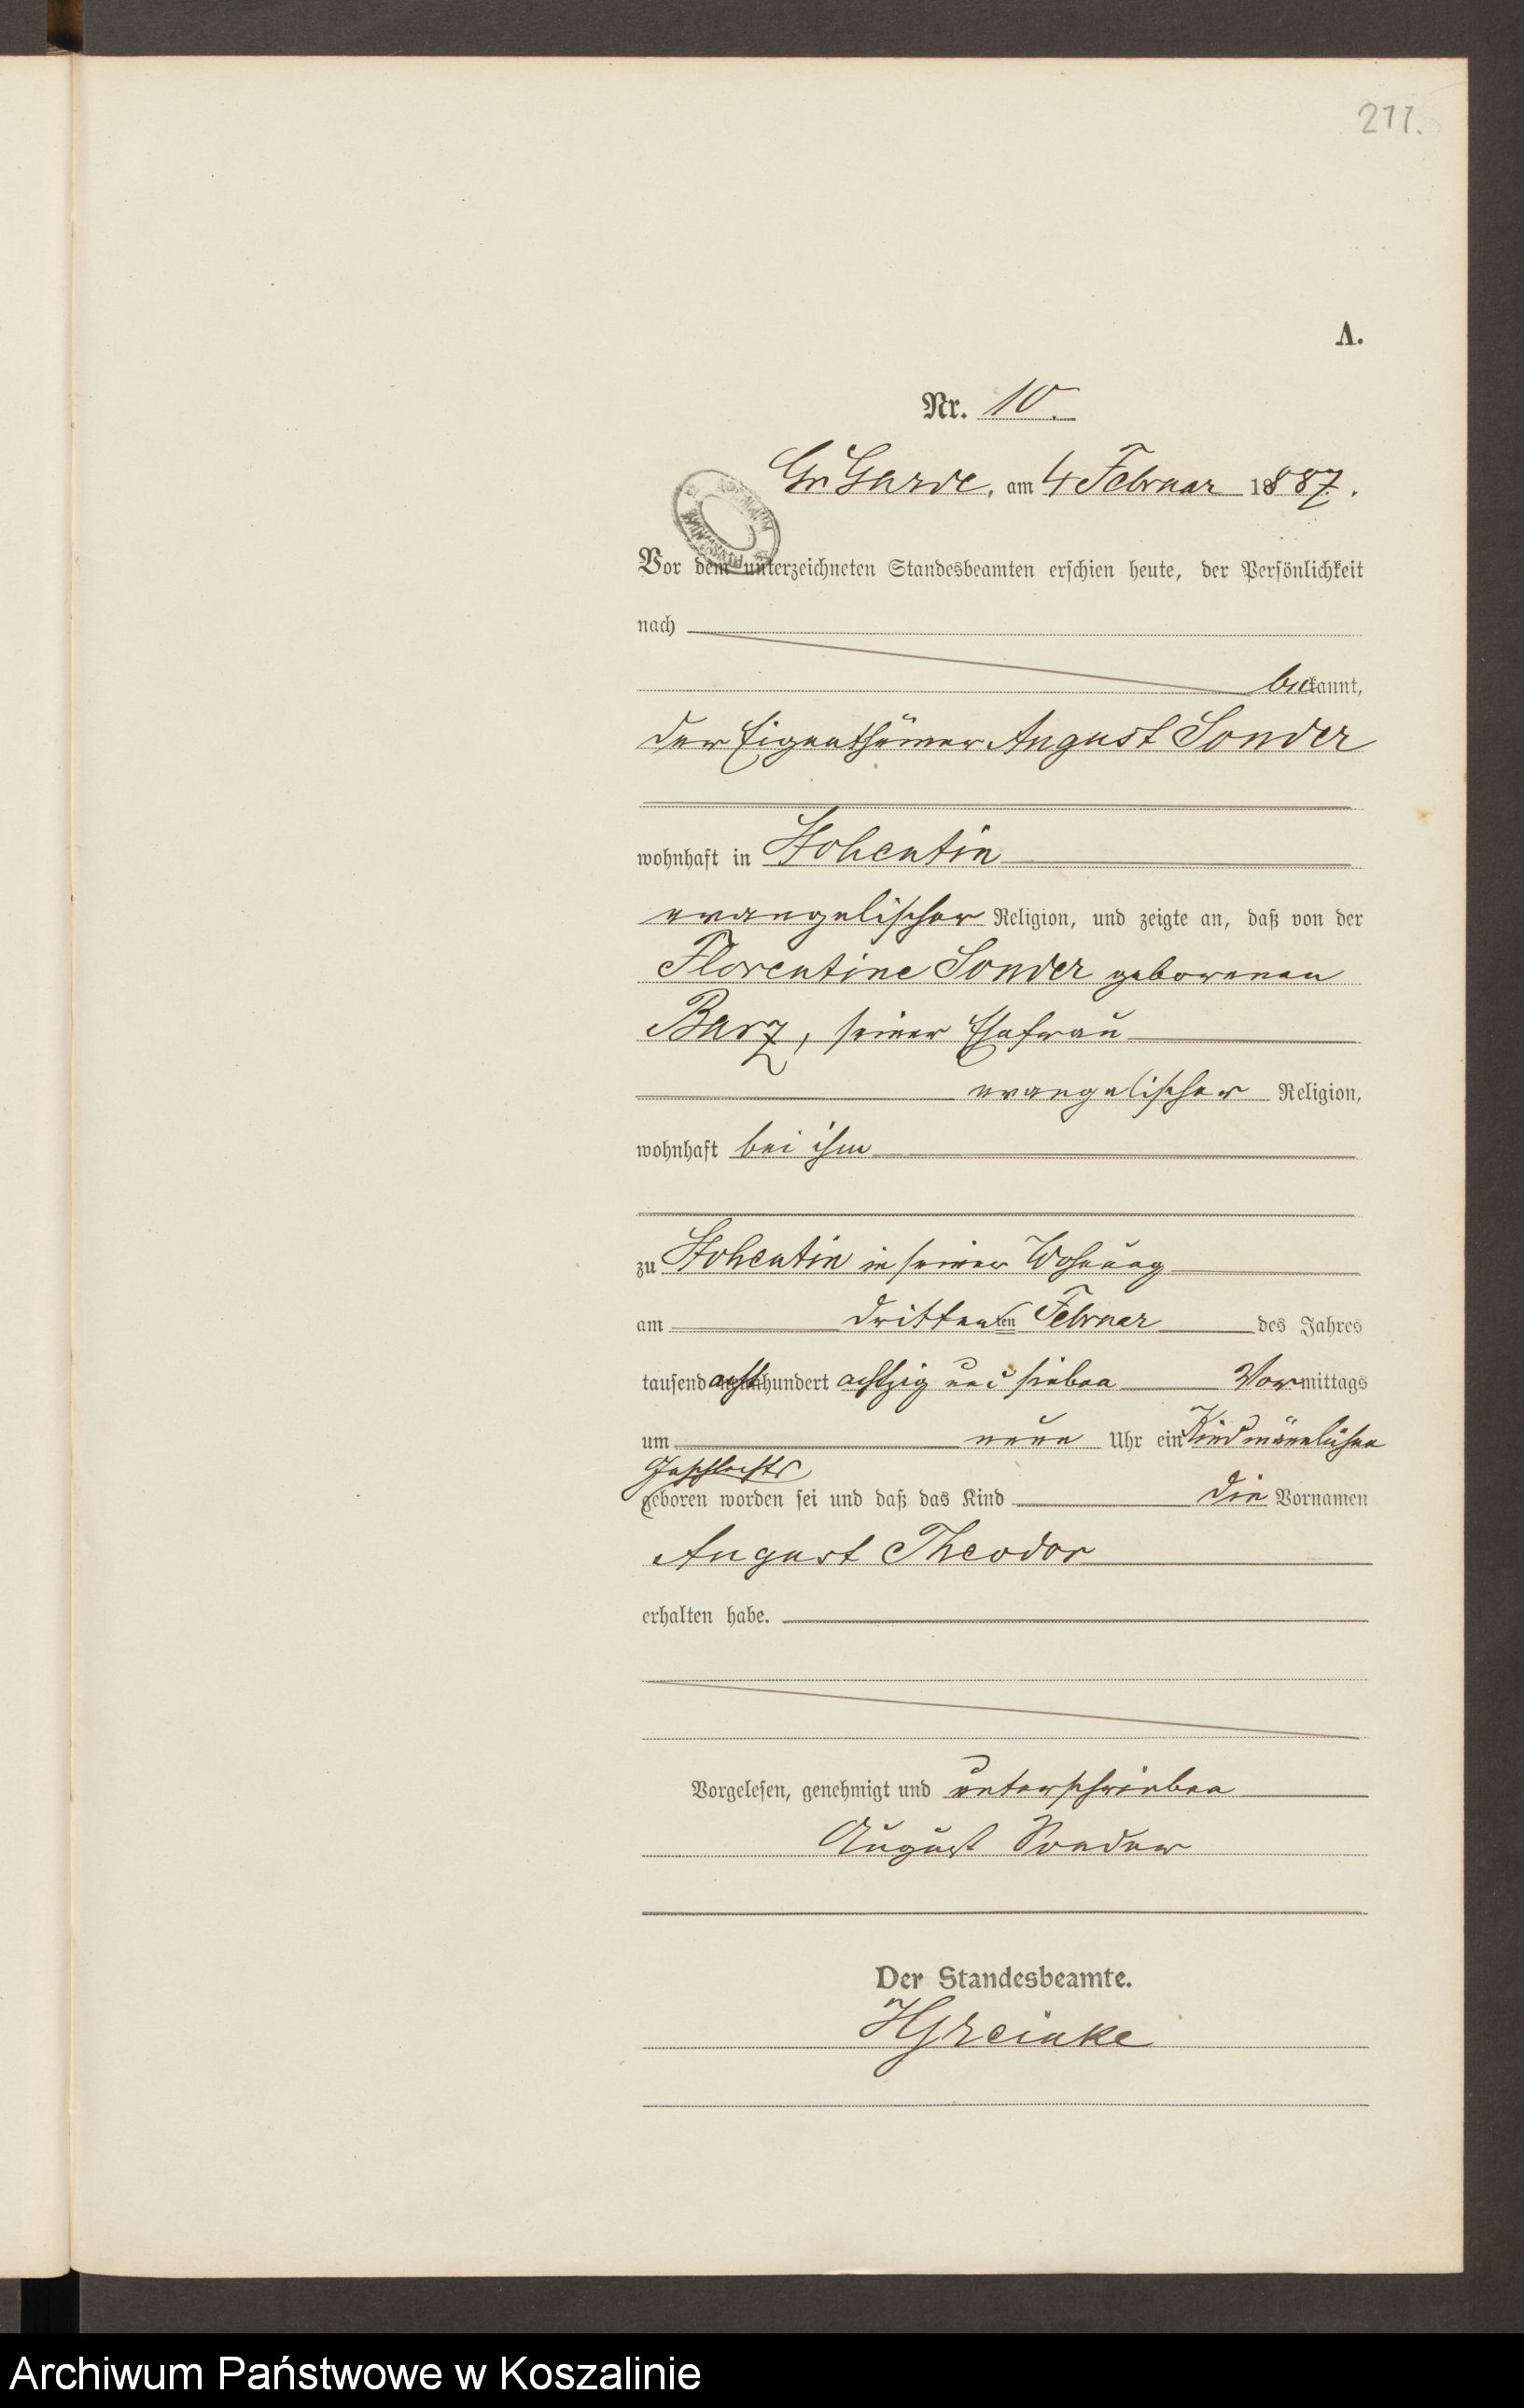 211.
A.
Nr. 10.
Gr Garde, am 4 Februar 1887.
Vor dem unterzeichneten Standesbeamten erschien heute, der Persönlichkeit
nach
bekannt,
der Eigenthümer August Sonder
wohnhaft in Stohentin
evangelischer Religion, und zeigte an, daß von der
Florentine Sonder geborenen
Barz, seiner Ehefrau
evangelischer Religion,
wohnhaft bei ihm
zu Stohentin in seiner Wohnung
am dritten ten Februar des Jahres
tausend acht hundert achtzig und sieben Vormittags
um neun Uhr ein Kind männlichen
Geschlechts
geboren worden sei und daß das Kind die Vornamen
August Theodor
erhalten habe.
Vorgelesen, genehmigt und unterschrieben
August Sonder
Der Standesbeamte.
Archiwum Państwowe w Koszalinie